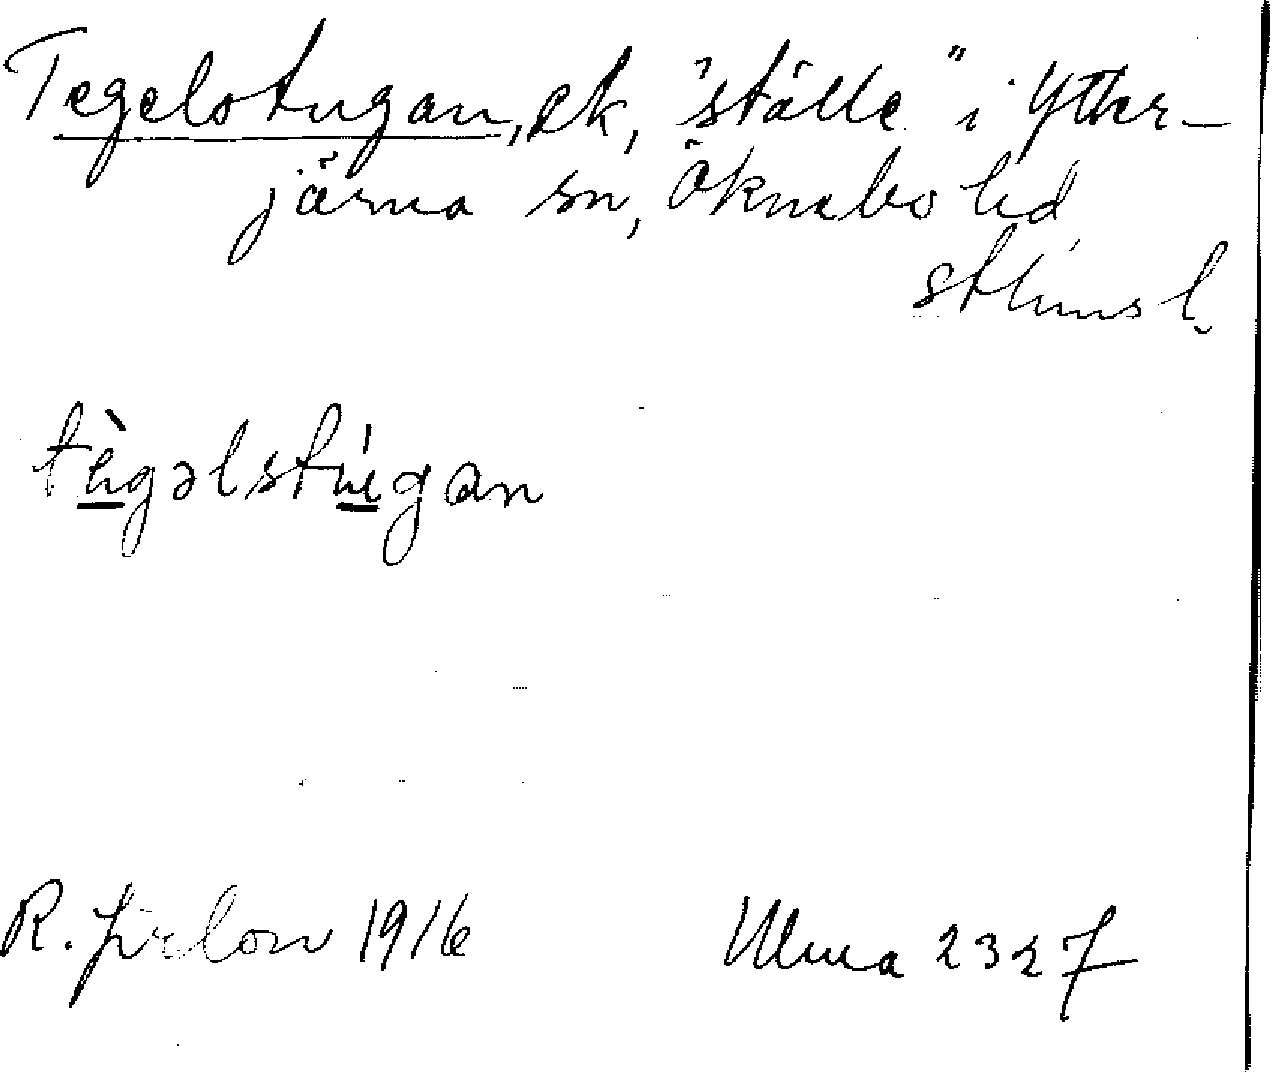 Tegelstugan, ek, "ställe" i Ytter-
järna sn, Öknebo hd
Sthlms l.
tègəlstúgan
R. Jirlow 1916
Ulma 2327